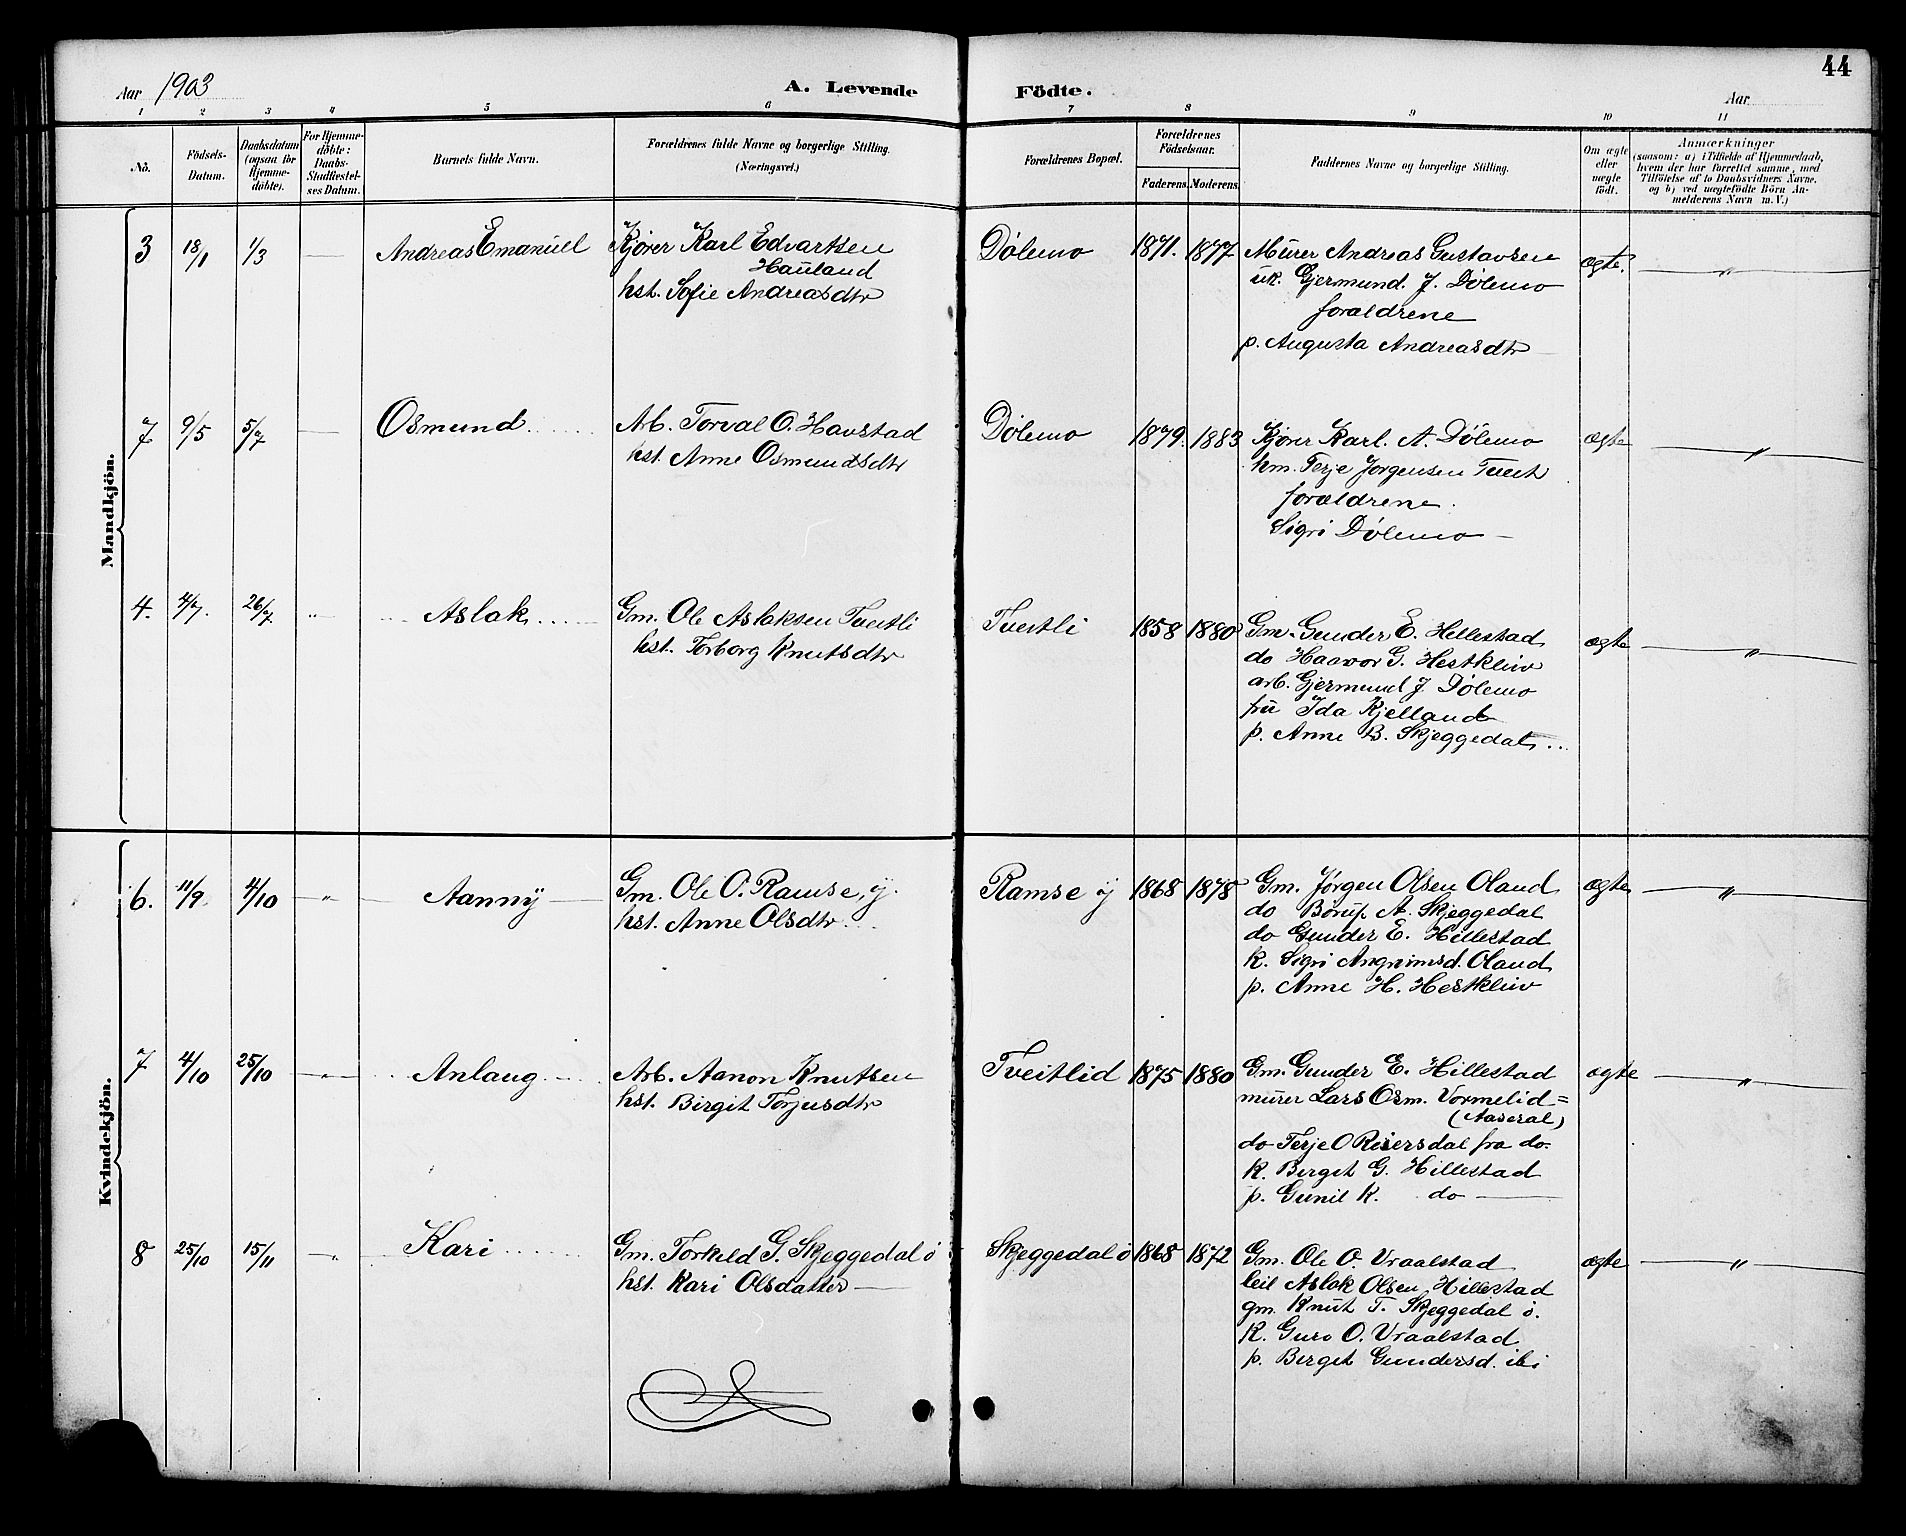 44
Aar 1903
A. Levende Födte.
Aar
1 2 3 4 5 6 7 8 9 10 11
No.
Födsels-Datum.
Daabsdatum (ogsaa for Hjemme-döbte).
For Hjemme-döbte: Daabs-Stadfæstel-ses Datum.
Barnets fulde Navn.
Forældrenes fulde Navne og borgerlige Stilling.
(Næringsvei.)
Forældrenes Bopæl.
Forældrenes Födselsaar.
Faderens. Moderens.
Faddernes Navne og borgerlige Stilling.
Om ægte eller uægte födt.
Anmærkninger
(saasom: a) i Tilfælde af Hjemmedaab,
hvem der har forrettet samme, med
Tilföielse af to Daabsvidners Navne,
og b) ved uægtefödte Börn An-
melderens Navn m. V.)
Mandkjön.
3 18/1 1/3 — Andreas Emanuel
Kjører Karl Edvartsen
Hauland
hst. Sofie Andreasdtr
Dölemo 1871. 1877
Mürer Andreas Gustavsen
uk. Gjermund J. Dölemo
forældrene
p. Augusta Andreasdtr
ægte. — " —
7 9/5 5/7 — Osmund
Arb. Torval O. Havstad
hst. Anne Osmundsdtr
Dölemo 1879. 1883
Kjører Karl. A. Dölemo
hm. Terje Jorgensen Tveit
forældrene.
Sigri Dölemo —
ægte — " —
4. 4/7. 26/7 " Aslak
Gm. Ole Aslaksen Tveitli
hst. Torborg Knutsdtr
Tveitli 1858 1880
Gm. Gunder E. Hillestad
do Haavor G. Hestkleiv
arb. Gjermund J. Dölemo
frü Ida Kjelland
p. Anne B. Skjeggedal
ægte — " —
Kvindekjön.
6. 11/9 4/10 — " — Aanny
Gm. Ole O. Ramse, y.
hst. Anne Olsdtr
Ramse y 1868 1878
Gm. Jørgen Olsen Oland
do Börup A. Skjeggedal
do Gunder E. Hillestad
k. Sigri Angrimsd. Oland
p. Anne H. Hestkleiv
ægte — " —
7 4/10 25/10 — " — Anlaug
Arb. Aanon Knutsen
hst. Birgit Torjusdtr
Tveitlid 1875 1880
Gm. Gunder E. Hillestad
mürer Lars Osm. Vormelid =
(Aaseral)
do Terje O Reiersdal fra do.
k. Birgit G. Hillestad
p. Gunil K. do —
ægte — " —
8 25/10 15/11 — " — Kari
Gm. Torkild G. Skjeggedal ö
hst. Kari Olsdatter —
Skjeggedal ö 1868 1872
Gm. Ole O. Vraalstad
leil Aslak Olsen Hillestad
gm. Knüt T. Skjeggedal ö.
k. Guro O. Vraalstad
p. Birgit Gundersd. ibi
ægte — " —